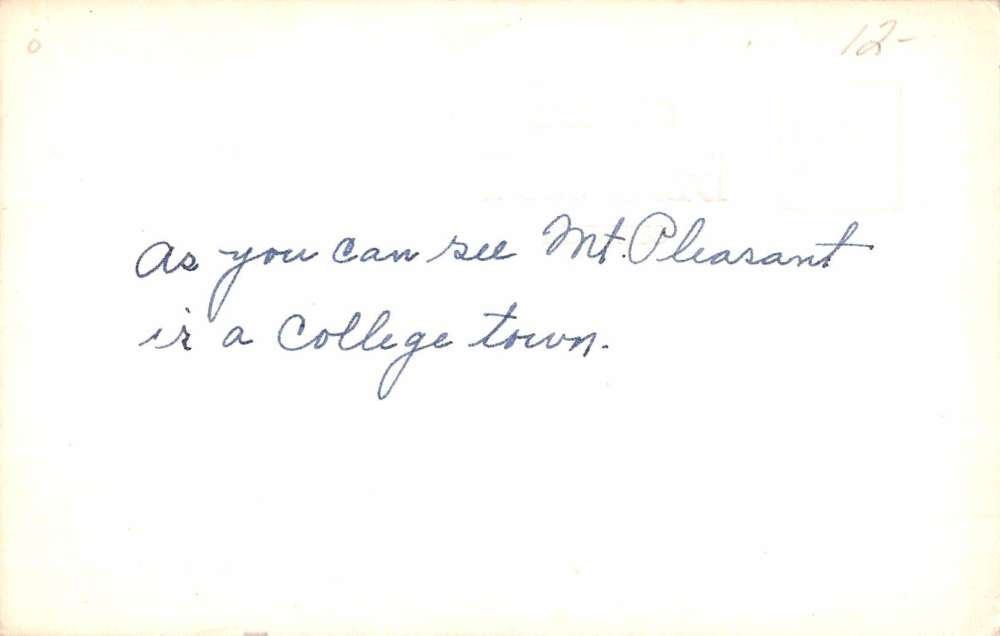 12-
As you can see Mt. Pleasant
is a College town.